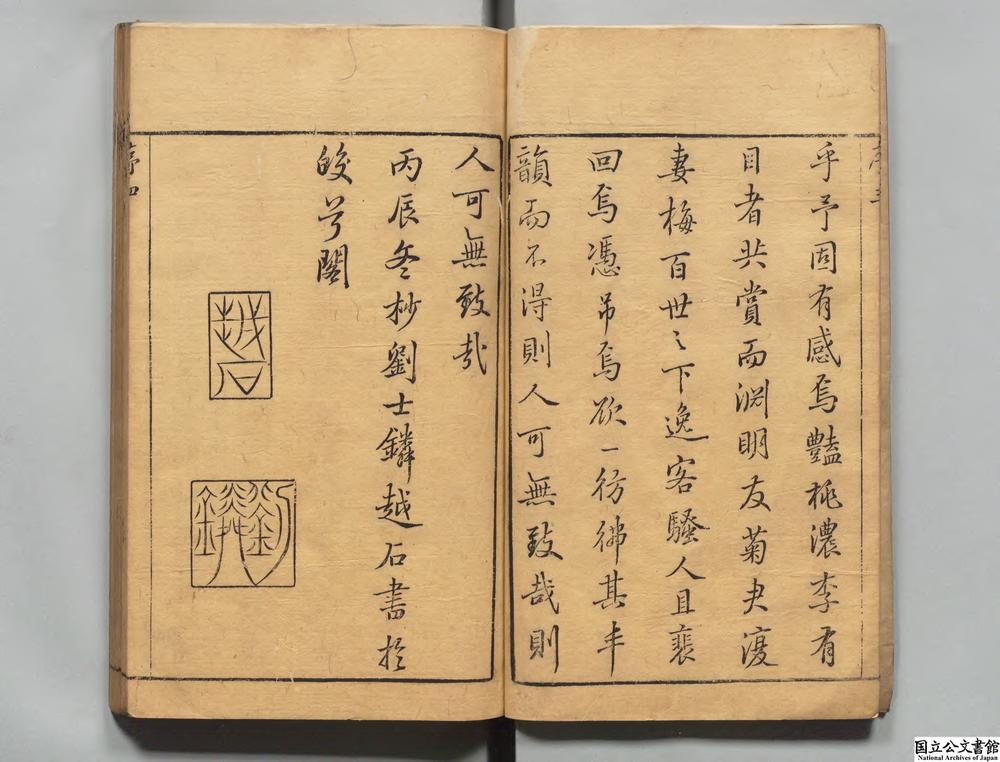 乎予固有感焉豔桃濃李有
目者共賞而淵明友菊史渡
妻梅百世之下逸客騷人且裴
回焉憑吊焉欲一彷彿其丰
韻而不得則人可無致哉則
人可無致哉
丙辰冬杪劉士鏻越石書於
皎兮閣
越石
劉士鏻
序三
序四
国立公文書館
National Archives of Japan